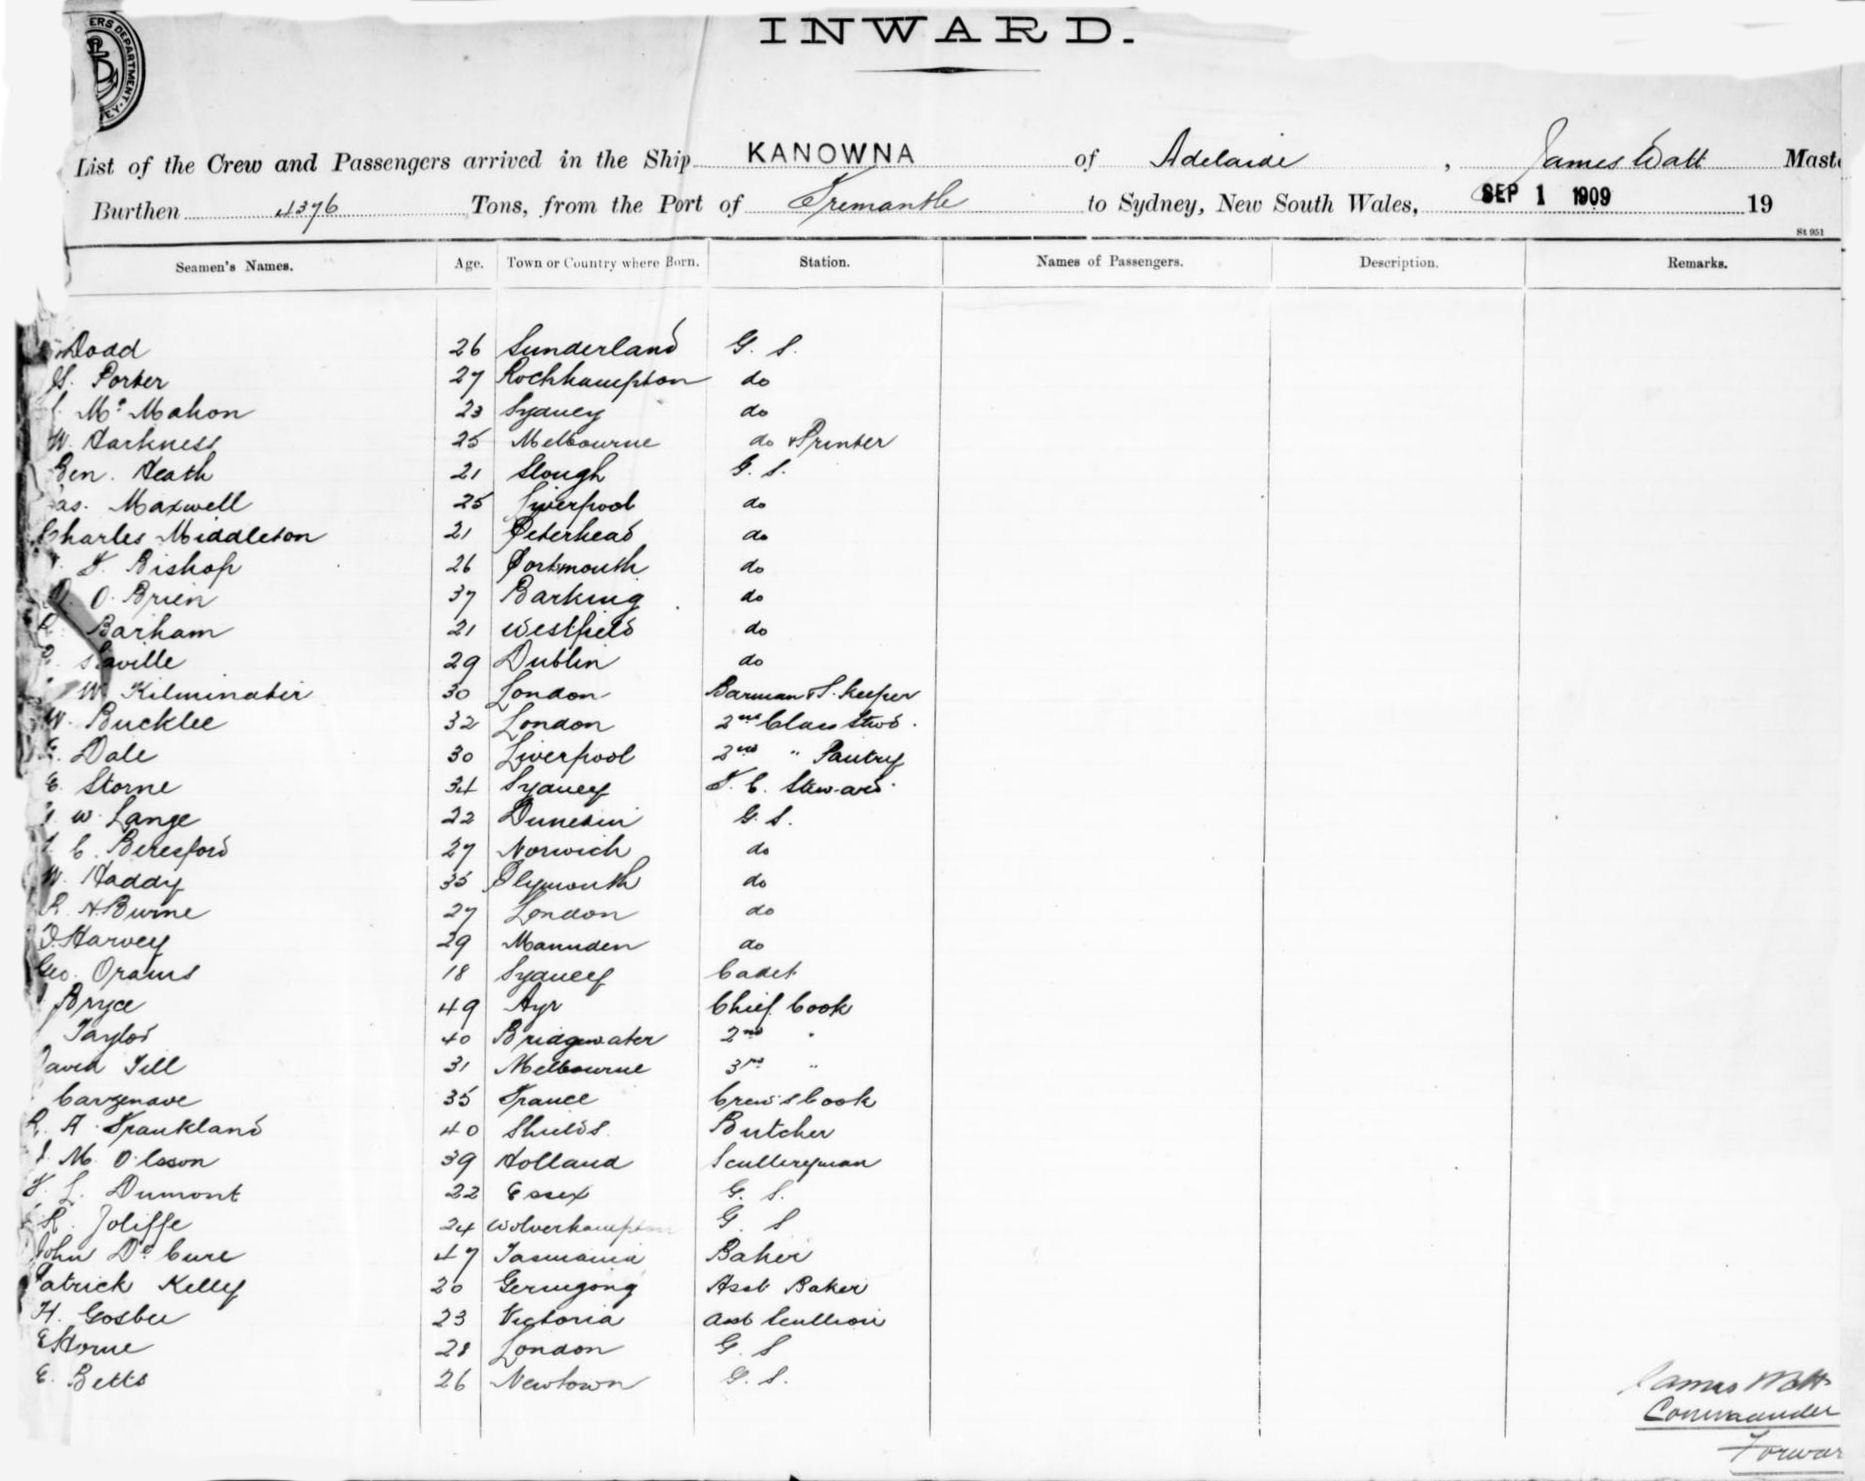 ERS DEPARTMENT
INWARD.
List of the Crew and Passengers arrived in the Ship KANOWNA of Adelaide, James Watt Mast
Burthen 4376 Tons, from the Port of Fremantle to Sydney, New South Wales, SEP 1 1909 19
St 951
Seamen's Names. Age. Town or Country where Born. Station. Names of Passengers. Description. Remarks.
Dodd 26 Sunderland G. S.
Porter 27 Rochhampton do
Mc Mahon 23 Sydney do
W. Harkness 25 Melbourne do & Printer
Ben. Heath 21 Slough G. S.
as. Maxwell 25 Liverpool do
Charles Middleton 21 Peterhead do
F. Bishop 26 Portsmouth do
O. Brien 37 Barking do
Barham 21 Westfield do
Saville 29 Dublin do
W. Kilminster 30 London Barman & S. Keeper
W. Bucklee 32 London 2nd Class Stwd.
Dale 30 Liverpool 2nd " Pantry
E. Storne 34 Sydney F. C. Steward
W. Lange 22 Dunedin G. S.
C. Beresford 27 Norwich do
W. Haddy 35 Plymouth do
R. H. Burne 27 London do
Harvey 29 Mannden do
Geo. Orams 18 Sydney Cadet
Bryce 49 Ayr Chief Cook
Taylor 40 Bridgwater 2nd "
David Till 31 Melbourne 3rd "
Cavzenave 35 France Crew's Cook
R. A. Frankland 40 Shields Butcher
M. Olsson 39 Holland Sculleryman
F. L. Dumont 22 Essex G. S.
R. Joliffe 24 Wolverhampton G. S
John De Cure 47 Tasmania Baker
Patrick Kelly 20 Gerringong Asst Baker
H. Gosbee 23 Victoria Asst Scullion
E Horne 28 London G. S
E. Betts 26 Newtown G. S.
James Watt
Commander
Forwar